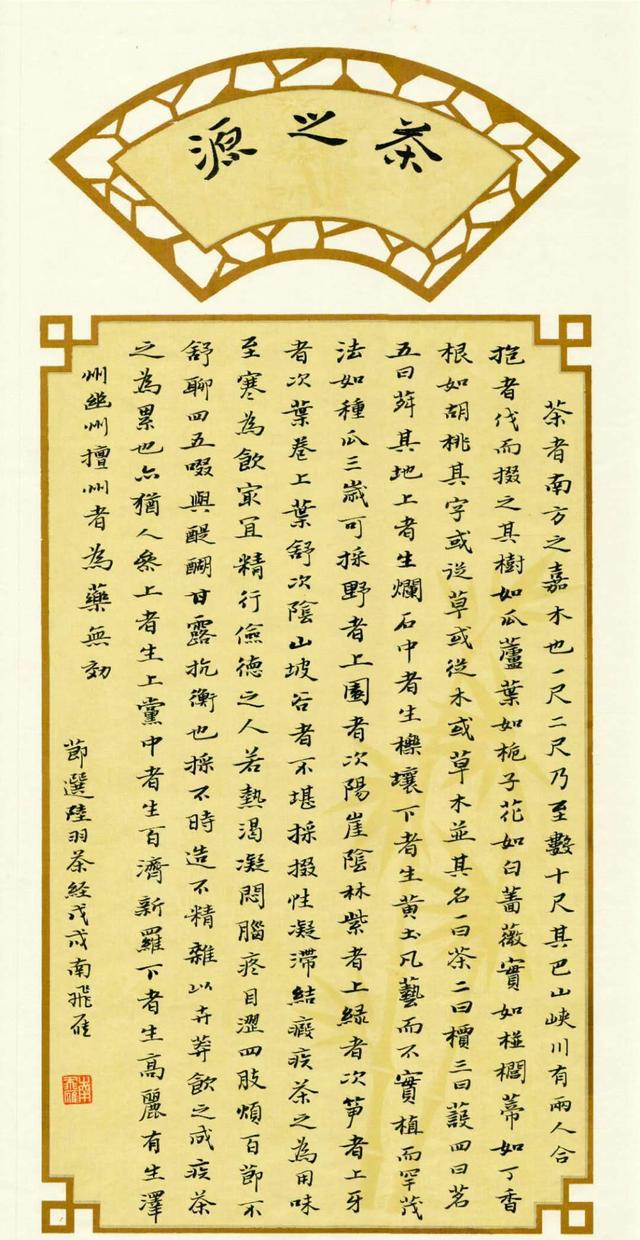 茶之源
茶者南方之嘉木也一尺二尺乃至數十尺其巴山峽川有兩人合
抱者伐而掇之其樹如瓜蘆葉如梔子花如白薔薇實如栟櫚蒂如丁香
根如胡桃其字或從草或從木或草木並其名一曰茶二曰檟三曰蔎四曰茗
五曰荈其地上者生爛石中者生櫟壤下者生黃土凡藝而不實植而罕茂
法如種瓜三歲可採野者上園者次陽崖陰林紫者上緑者次笋者上牙
者次葉卷上葉舒次陰山坡谷者不堪採掇性凝滯結瘕疾茶之為用味
至寒為飲冣宜精行儉德之人若熱渴凝悶腦疼目澀四肢煩百節不
舒聊四五啜與醍醐甘露抗衡也採不時造不精雜以卉莽飲之成疾茶
之為累也亦猶人參上者生上黨中者生百濟新羅下者生高麗有生澤
州幽州擅州者為藥無効
節選陸羽茶經戊戌南飛雁